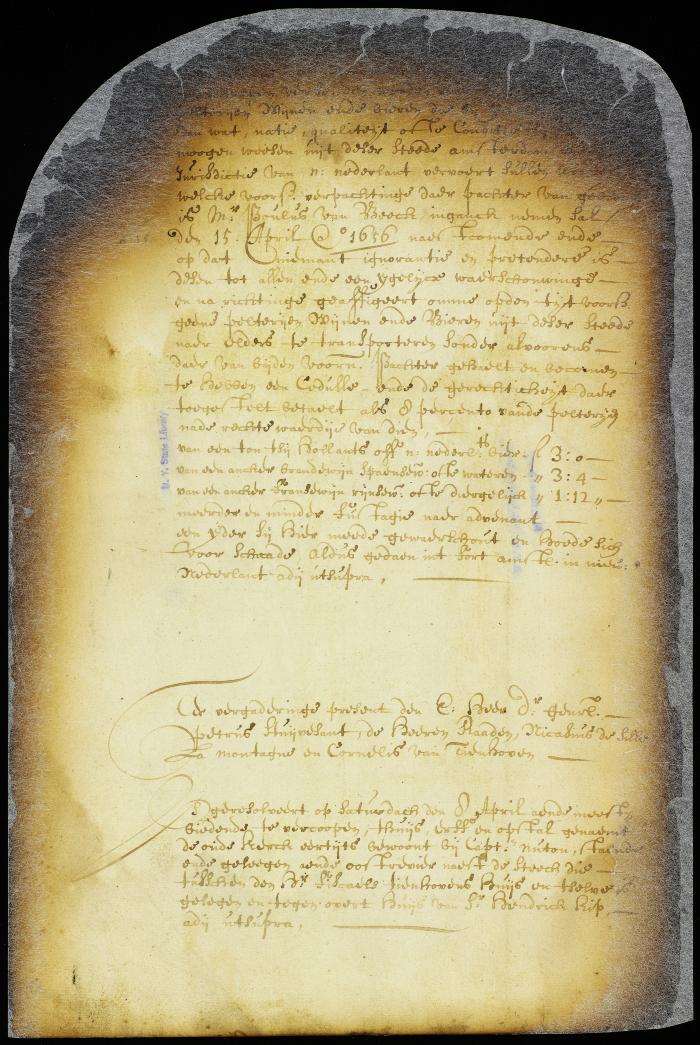 pelterijen Wijnen ende bieren die
van wat, natie, qualiteyt ofte Conditie
moogen weesen uijt deser Steede amsterdam
Jurisdictie van n: nederlant vervoert sullen
welcke voors: verpachtinge daer pachter van
is Mr. Paulus van Beeck inganck nemen sal
den 15: April @o 1656 naer Tcomende ende
op dat niemant ignorantie en pretendere is
desen tot allen ende een ygelijck waerschouwinge
en na richtinge geaffigeert omme op den tijt voors
geene pelterijen Wijnen ende Bieren uijt deser Steede
naer elders te transporteren sonder alvoorens
daer van bijden voorn. Pachter gehaelt en becomen
te hebben een Cedulle ende de gerechticheyt daer
toegestelt betaelt als 8 percento vande pelterijen
nade rechte waerdije van dien,
van een ton tsij Hollants off n: nederlts bier f 3:0
van een ancker brandewijn spaensew: ofte wateren „ 3:4
van een ancker fransewijn rijnsew: ofte diergelijck „ 1:12„
meerder en minder fustagie naer advenant
een yder sij hier meede gewaerschout en hoede sich
voor schaade, Aldus gedaen int fort amst: in nieu:
Nederlant adij utsupra,
N. Y. State Library
Ter vergaderinge present den E: Heer Dr. Genrl.
Petrus Stuijvesant, de Heeren Raaden, Nicasius de Sille
La montagne en Cornelis van Tienhoven
Is geresolveert op saturdach den 8 April aende meest
biedende te vercoopen, thuijs, erff en opstal genaemt
de oude kerck eertijts bewoont bij Capt. nuton, staende
ende geleegen aende oostrevier naest de Steech die
tusschen den Hr. fiscaels tienhovens huijs en tselve is
gelegen en tegen-over t huijs van Sr. Hendrick kip,
adij utsupra,